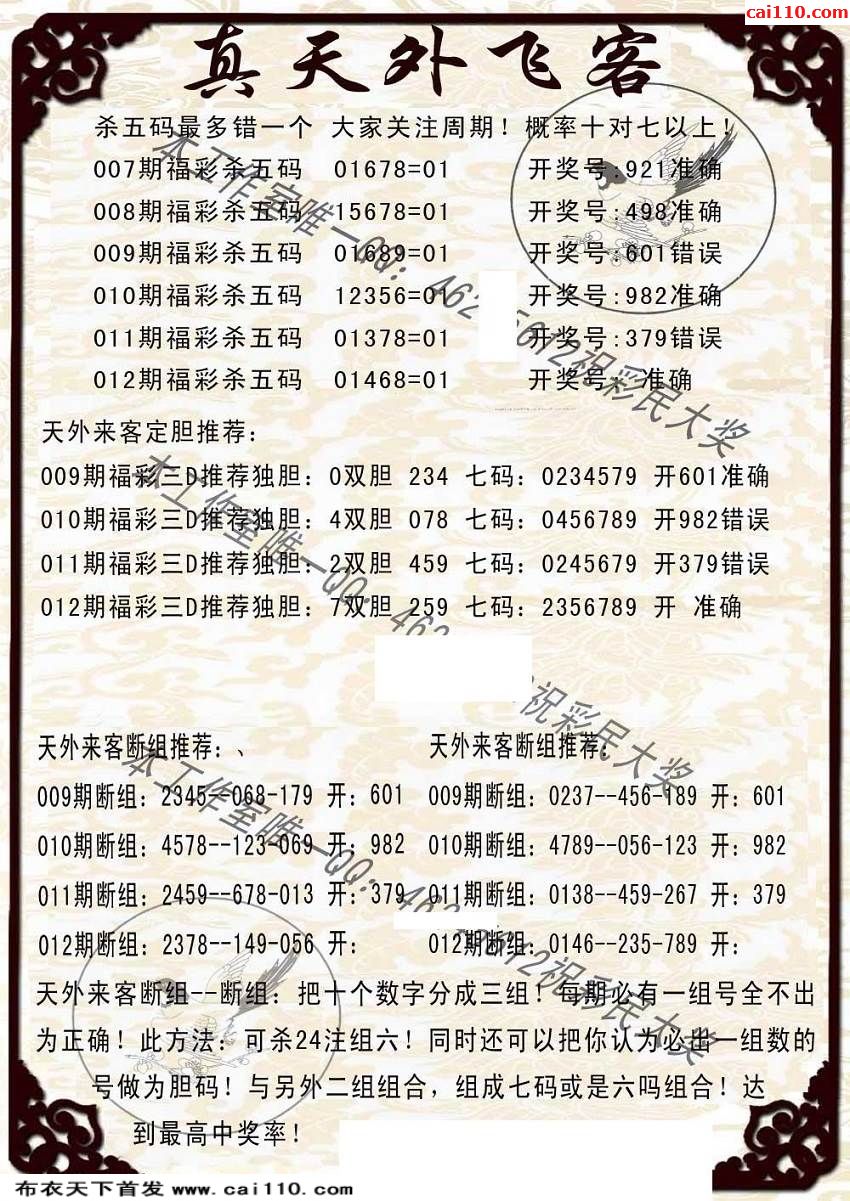 cai110.com
真天外飞客
杀五码最多错一个 大家关注周期！概率十对七以上！
007期福彩杀五码 01678=01 开奖号:921准确
008期福彩杀五码 15678=01 开奖号:498准确
009期福彩杀五码 01689=01 开奖号:601错误
010期福彩杀五码 12356=01 开奖号:982准确
011期福彩杀五码 01378=01 开奖号:379错误
012期福彩杀五码 01468=01 开奖号: 准确
天外来客定胆推荐：
009期福彩三D推荐独胆：0双胆 234 七码：0234579 开601准确
010期福彩三D推荐独胆：4双胆 078 七码：0456789 开982错误
011期福彩三D推荐独胆：2双胆 459 七码：0245679 开379错误
012期福彩三D推荐独胆：7双胆 259 七码：2356789 开 准确
天外来客断组推荐：、
009期断组：2345--068-179 开：601
010期断组：4578--123-069 开：982
011期断组：2459--678-013 开：379
012期断组：2378--149-056 开：
天外来客断组推荐：
009期断组：0237--456-189 开：601
010期断组：4789--056-123 开：982
011期断组：0138--459-267 开：379
012期断组：0146--235-789 开：
天外来客断组--断组：把十个数字分成三组！每期必有一组号全不出
为正确！此方法：可杀24注组六！同时还可以把你认为必出一组数的
号做为胆码！与另外二组组合，组成七码或是六吗组合！达
到最高中奖率！
本工作室唯一QQ：462 5612祝彩民大奖
本工作室唯一QQ：462 祝彩民大奖
本工作室唯一QQ：462 5612祝彩民大奖
布衣天下首发 www.cai110.com